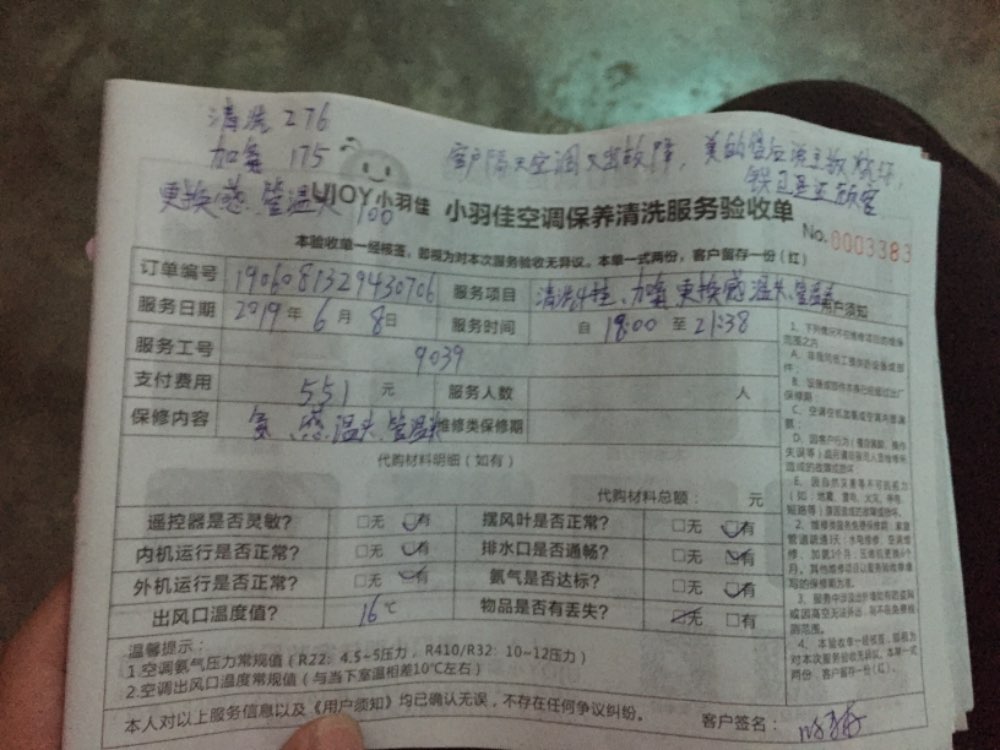 清洗 276
加氨 175
客户隔天空调又出故障,美的售后说主板烧坏
更换感、管温头 100
UJOY小羽佳 小羽佳空调保养清洗服务验收单
No.0003383
本验收单一经核签,即视为对本次服务验收无异议。本单一式两份,客户留存一份(红)
订单编号 1906081329430706 服务项目 清洗4挂、加氨 更换感温头、管温头
用户须知
服务日期 2019年6月8日 服务时间 自 18:00 至 21:38
服务工号 9039
支付费用 551元 服务人数 人
保修内容 氨、感温头、管温头 维修类保修期
代购材料明细(如有)
代购材料总额: 元
遥控器是否灵敏? □无 □有 摆风叶是否正常? □无 □有
内机运行是否正常? □无 □有 排水口是否通畅? □无 □有
外机运行是否正常? □无 □有 氨气是否达标? □无 □有
出风口温度值? 16℃ 物品是否有丢失? □无 □有
温馨提示:
1.空调氨气压力常规值(R22:4.5~5压力,R410/R32:10~12压力)
2.空调出风口温度常规值(与当下室温相差10℃左右)
本人对以上服务信息以及《用户须知》均已确认无误,不存在任何争议纠纷。 客户签名:
1、下列情况不在维修项目的维保
范围之内
A、非我司员工提供的设备或部
件;
B、设备或部件本身已经超过出厂
保修期
D、因客户行为
造成的故障或损坏
E、因自然灾害等不可抗拒力
(如:地震、雷电、火灾、停电、
短路等)原因造成的故障或损坏。
2、维修类服务免费保修期:家庭
管道疏通3天;水电维修、空调维
4、本验收单一经核签,即视为
对本次服务验收无异议。本单一式
两份,客户留存一份(红)。